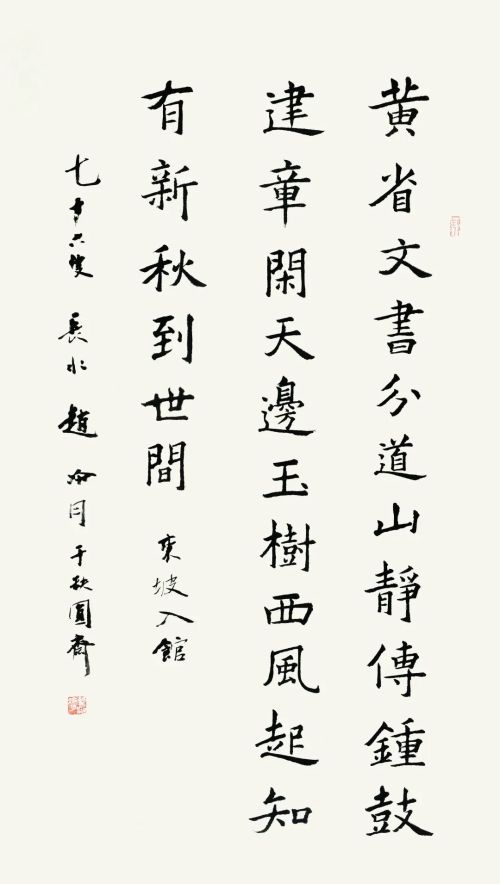 黄省文書分道山靜傳鍾鼓
建章閑天邊玉樹西風起知
有新秋到世間
東坡入館
七十六叟 長水 趙冷月 于秋圓齋